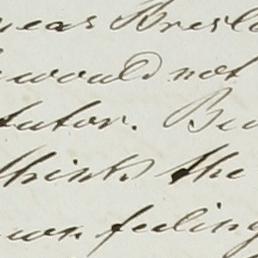 near Bresl
would not
tutor. Bu
thinks the
own feeling